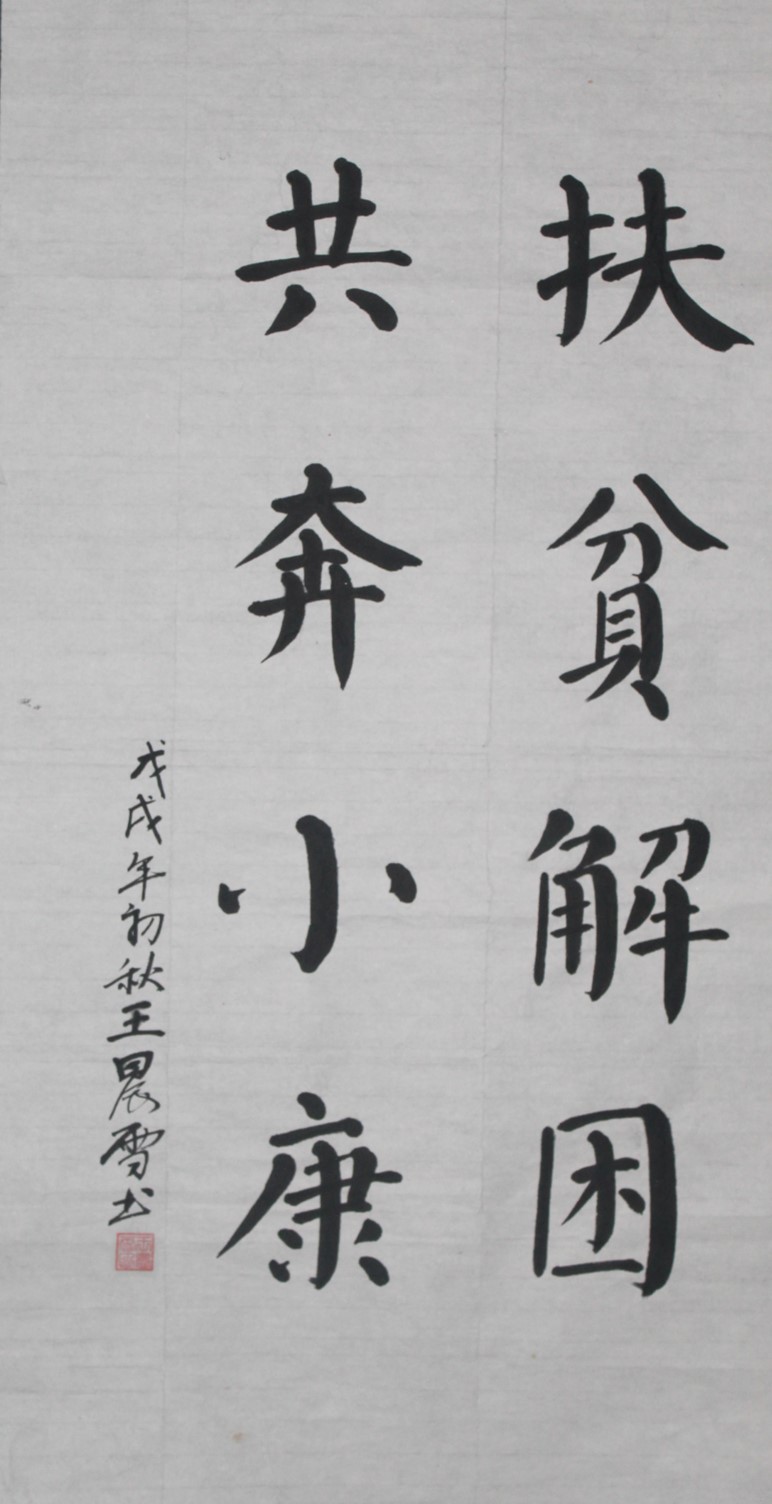 扶貧解困
共奔小康
戊戌年初秋王晨雪书